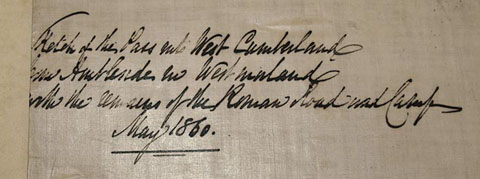 Sketch of the Pass into West Cumberland
from Ambleside in Westmorland
with the remains of the Roman Road and Camp
May 1860.